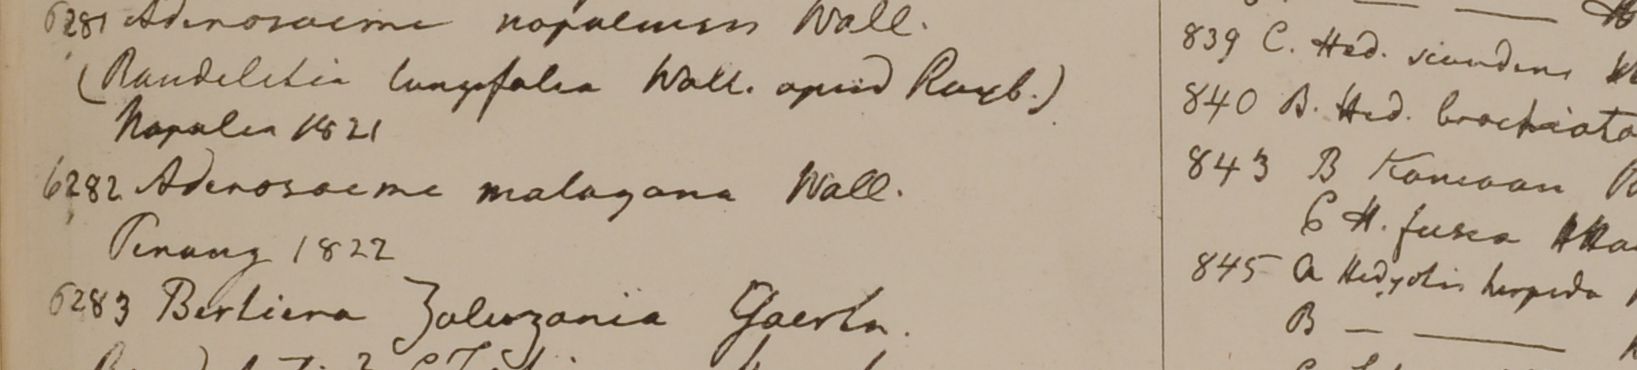 6281 Adenosacme nopalensis Wall.
(Randeletia longifolia Wall. apud Roxb.)
Napalia 1821
6282 Adenosacme malayana Wall.
Penang 1822
6283 Bertiera Zaluzania Gaertn.
839 C. Hed. scandens
840 B. Hed. brachiata
843 B
C H. fusca
845 a Hedyotis hispida
B — ———